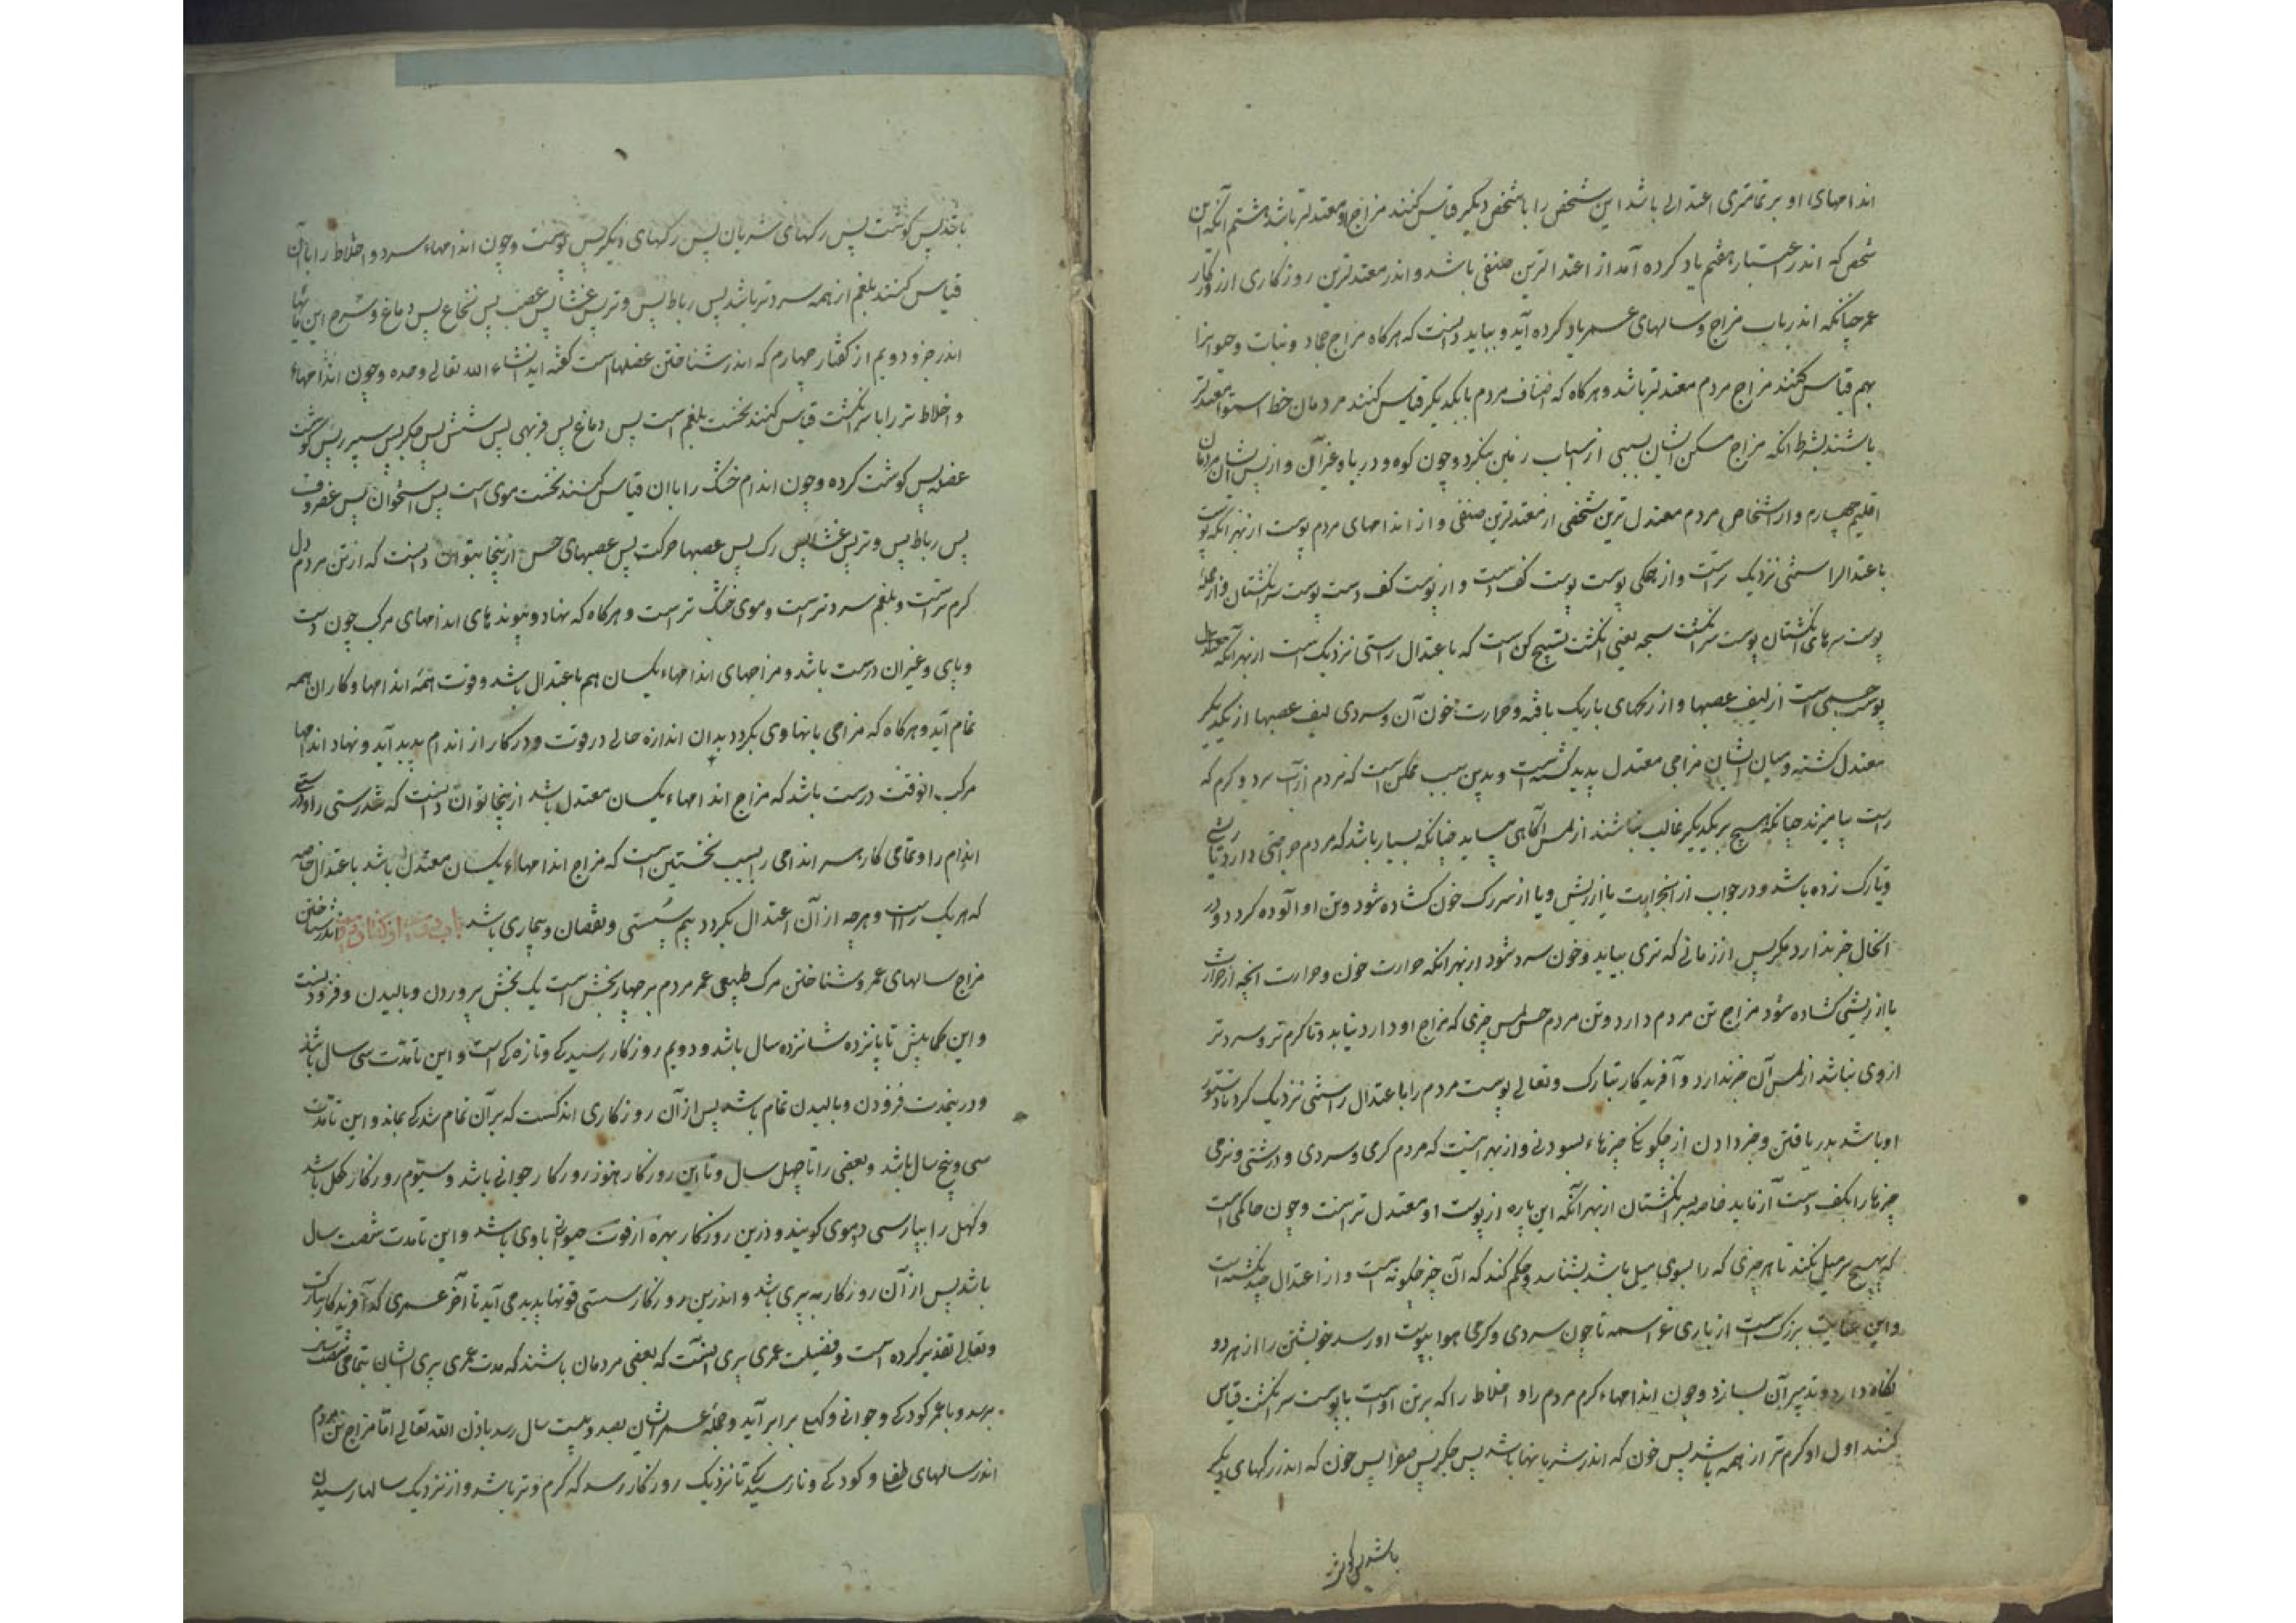 اندامهای او بر تمامتری اعتدالی باشد این شخص را با شخص دیگر قیاس کنند مزاج او معتدلتر باشد هشتم آنکه این
شخص که اندر اعتبار هفتم یاد کرده آمد از اعتدالترین صنفی باشد و اندر معتدلترین روزکاری از روزکار
عمر چنانکه اندر باب مزاج و سالهای عمر یاد کرده آید و بباید دانست که هرکاه مزاج جماد و نبات و حیوانرا
بهم قیاس کنند مزاج مردم معتدلتر باشد و هرکاه که اصناف مردم با یکدیکر قیاس کنند مردمان خط استوا معتدلتر
باشند بشرط انکه مزاج مسکن ایشان بسببی از اسباب زمین بنکردد چون کوه و دریا و غیر آن و از پس ایشان مردمان
اقلیم چهارم و از اشخاص مردم معتدل ترین شخصی از معتدلترین صنفی و از اندامهای مردم پوست از بهر انکه پوست
باعتدال راستی نزدیک تراست و از همکی پوست پوست کف دست و از پوست کف دست پوست سر انکشتان و از جمله
پوست سرهای انکشتان پوست سر انکشت سبحه یعنی انکشت تسبیح کن است که باعتدال راستی نزدیک است از بهر انکه
پوست جسمی است از لیف عصبها و از رکهای باریک بافته و حرارت خون آن و سردی لیف عصبها از یکدیکر
معتدل کشته و میان ایشان مزاجی معتدل پدید کشته است و بدین سبب ممکن است که مردم از آب سرد و کرم که
راست بیامیزند چنانکه هیچ بر یکدیکر غالب نباشند از لمس آکاهی نیابد چنانکه بسیار باشد که مردم جراحتی دارد یا ریشی
و یا رک زده باشد و در خواب از جراحت یا از ریش و یا از سر رک خون کشاده شود و تن او آلوده کردد و در
انحال خبر ندارد مکر پس از زمانی که تری بیابد و خون سرد شود از بهر انکه حرارت خون و حرارت انچه از جراحت
یا از ریشی کشاده شود مزاج تن مردم دارد و تن مردم حس لمس چیزی که مزاج او دارد نیابد و تا کرم تر و سردتر
از وی نباشد از لمس آن خبر ندارد و آفریدکار تبارک و تعالی پوست مردم را باعتدال راستی نزدیک کرد تا دستور
او باشد بدریافتن و خبر دادن از چکونکی چیزهاء بسودنی و از بهر اینست که مردم کرمی و سردی و درشتی و نرمی
چیزها را بکف دست آزماید خاصه بسر انکشتان از بهر آنکه این پاره از پوست او معتدل تر است و چون حاکمی است
که بهیچ سر میل نکند تا هر چیزی که را بسوی میل باشد بشناسد و حکم کند که آن چیز چکونه است و از اعتدال چند کشته است
و این عنایت بزرک است از باری عز اسمه تا چون سردی و کرمی هوا بپوست او رسد خویشتن را از هر دو
نکاه دارد و تدبیر آن بسازد و چون اندامهاء کرم مردم را و اخلاط را که بر تن اوست با پوست سر انکشت قیاس
کنند اول او کرم تر از همه باشد پس خون که اندر شریانها باشد پس جکر پس صفرا پس خون که اندر رکهای دیکر
باشد پس کوشت
باشد پس کوشت پس رکهای شریان پس رکهای دیکر پس پوست و چون اندامهاء سرد و اخلاط را با آن
قیاس کنند بلغم از همه سردتر باشد پس رباط پس وتر پس غشا پس عصب پس نخاع پس دماغ و شرح این مایها
اندر جزو دویم از کفتار چهارم که اندر شناختن عضلها است کفته اید انشاء الله تعالی وحده و چون اندامهاء
و اخلاط تر را با سر انکشت قیاس کنند نخست بلغم است پس دماغ پس فربهی پس شش پس جکر پس سپرز پس کوشت
عضله پس کوشت کرده و چون اندام خشک را با ان قیاس کنند نخست موی است پس استخوان پس غضروف
پس رباط پس وتر پس غشا پس رک پس عصبها حرکت پس عصبهای حس ازینجا بتوان دانست که از تن مردم دل
کرم تراست و بلغم سردتراست و موی خشک تراست و هرکاه که نهاد و پیوندهای اندامهای مرکب چون دست
و پای و غیر ان درست باشد و مزاجهای اندامهاء یکسان هم باعتدال باشد و قوت همه اندامها و کار ان همه
تمام آید و هرکاه که مزاجی یا نهادی بکردد بدان اندازه خللی در قوت و در کار از اندام پدید آید و نهاد اندامها
مرکب انوقت درست باشد که مزاج اندامهاء یکسان معتدل باشد ازینجا توان دانست که تندرستی را و درستی
اندام را و تمامی کار هر اندامی را سبب نخستین است که مزاج اندامهاء یکسان معتدل باشد باعتدال خاصه
که هر یک راست و هرچه از آن اعتدال بکردد بیم سستی و نقصان و بیماری باشد اندر شناختن
مزاج سالهای عمر و شناختن مرک طبیعی عمر مردم بر چهار بخش است یک بخش پروردن و بالیدن و فزودنست
و این کما بیش تا پانزده شانزده سال باشد و دویم روزکار رسیدکی و تازه کی است و این تا مدت سی سال باشد
و درینمدت فزودن و بالیدن تمام باشد پس از آن روزکاری اندکست که بر آن تمام شدکی بماند و این تا مدت
سی و پنج سال باشد و بعضی را تا چهل سال و تا این روزکار هنوز روزکار جوانی باشد و سیوم روزکار کهل باشد
و کهل را بپارسی دوموی کویند و درین روزکار بهره از قوت حیوانی با وی باشد و این تا مدت شصت سال
باشد پس از آن روزکار به پیری باشد و اندرین روزکار سستی قوتها پدید می آید تا آخر عمری که آفریدکار تبارک
و تعالی تقدیر کرده است و فضیلت عمری پیری انست که بعضی مردمان باشند که مدت عمری پیری ایشان بتمامی شصت سال
برسد و با عمر کودکی و جوانی و کهلی برابر آید و جمله عمر ایشان بصد و بیست سال رسد باذن الله تعالی اما مزاج تن مردم
اندر سالهای طفلی و کودکی و نارسیدکی تا نزدیک روزکار رسد که کرم و تر باشد و از نزدیک سالها رسیدن